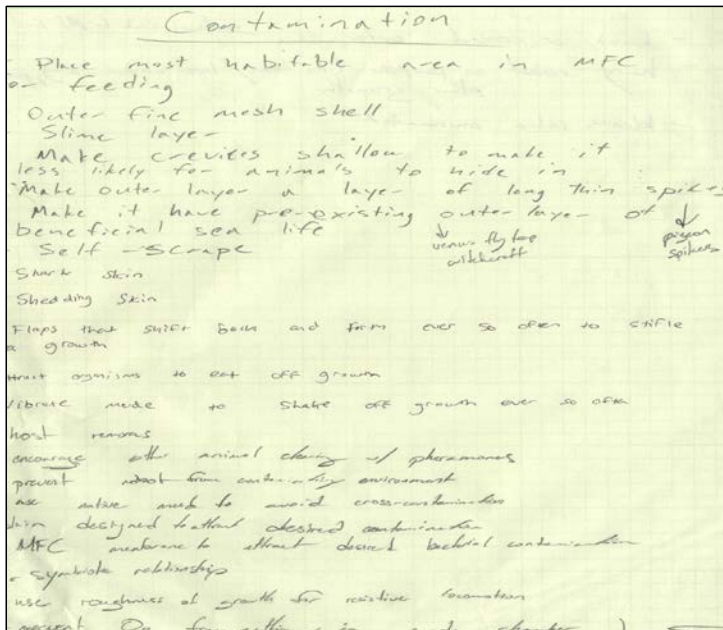 Contamination
Place most habitable area in MFC
or feeding
Outer fine mesh shell
Slime layer
Make crevices shallow to make it
less likely for animals to hide in
Make outer layer a layer of long thin spikes
Make it have pre-existing outer layer of
beneficial sea life
venus fly trap
witchcraft
pigeon
spikes
Self-scrape
Shark skin
Shedding skin
Flaps that shift back and form ever so often to stifle
a growth
organisms to eat off growth
vibrate mode to shake off growth ever so often
host remoras
encourage other animal cleaning w/ pheramones
prevent robot from contaminating environment
use native mud to avoid cross-contamination
designed to attract desired contamination
MFC membrane to attract desired bacterial contamination
symbiote relationship
use roughness of growth for resistive locomotion
prevent O2 from getting in